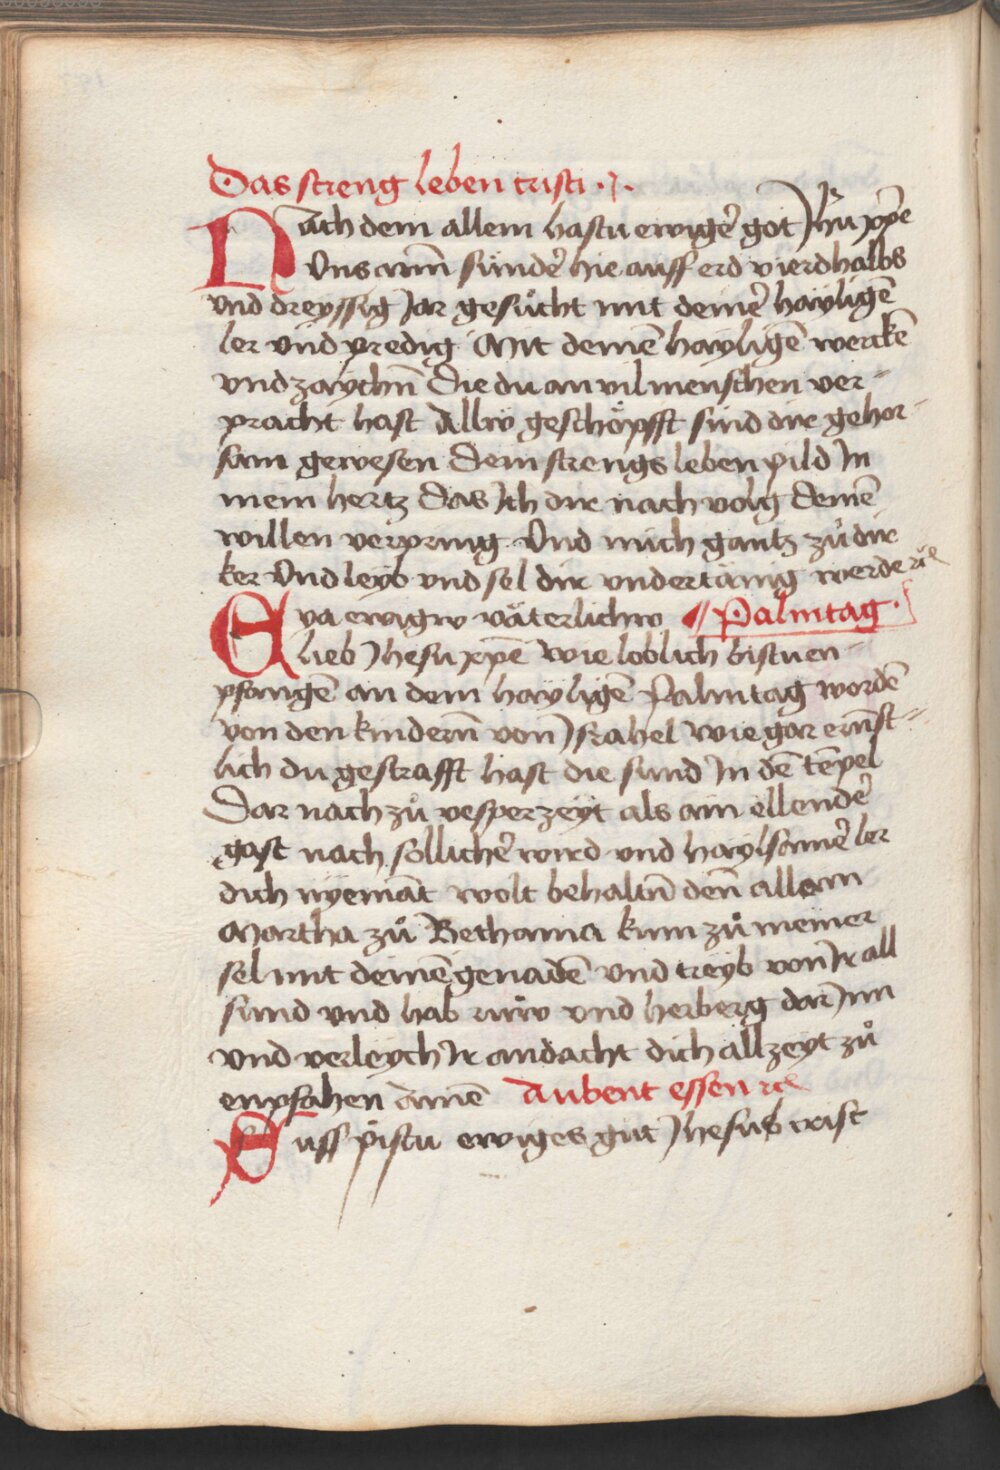 Das streng leben cristi ·
Nach dem allem hastu ewiger̄ got Jhū xp̄e
Uns arm̄ sünder̄ hie auff erd vierdhalbs
vnd dreyssig Jar gesu̇cht mit deiner̄ hayligē
ler vnd predig Mit deinē hayligē werckē
vnd zaychn̄ Die du an vil menschen ver-
pracht hast Allw geschöpfft sind dir gehor-
sam gewesen Dem strengs leben pild In
mein hertz Das Ich dir nach volg deinē
willen verpring Und mich gantz zů dir
ker Und leyb vnd sel dir vndertänig werde ꝛc̄
Eya ewigw väterlichw ¶ Palmtag ·
lieb Jhesu xp̄e Wie loblich bistu en-
pfangē an dem hayligē Palmtag wordē
von den kindern̄ von Jsrahel Wie gar ernst-
lich du gestrafft hast die sund In dē tēpel
Dar nach zů vesperzeyt als ain ellender̄
gast nach sollicher̄ wird vnd haylsamer̄ ler
dich nyemāt wolt behaltn̄ den̄ allain
Martha zů Bethania kum zů meiner
sel mit deinē genadē vnd treyb von Ir all
sund vnd hab ruw vnd herberg dar Inn
vnd verleych Ir andacht dich allzeyt zů
enpfahen Amē Aubent essen ꝛc̄
Suss pistu ewiges gut Jhesus crist